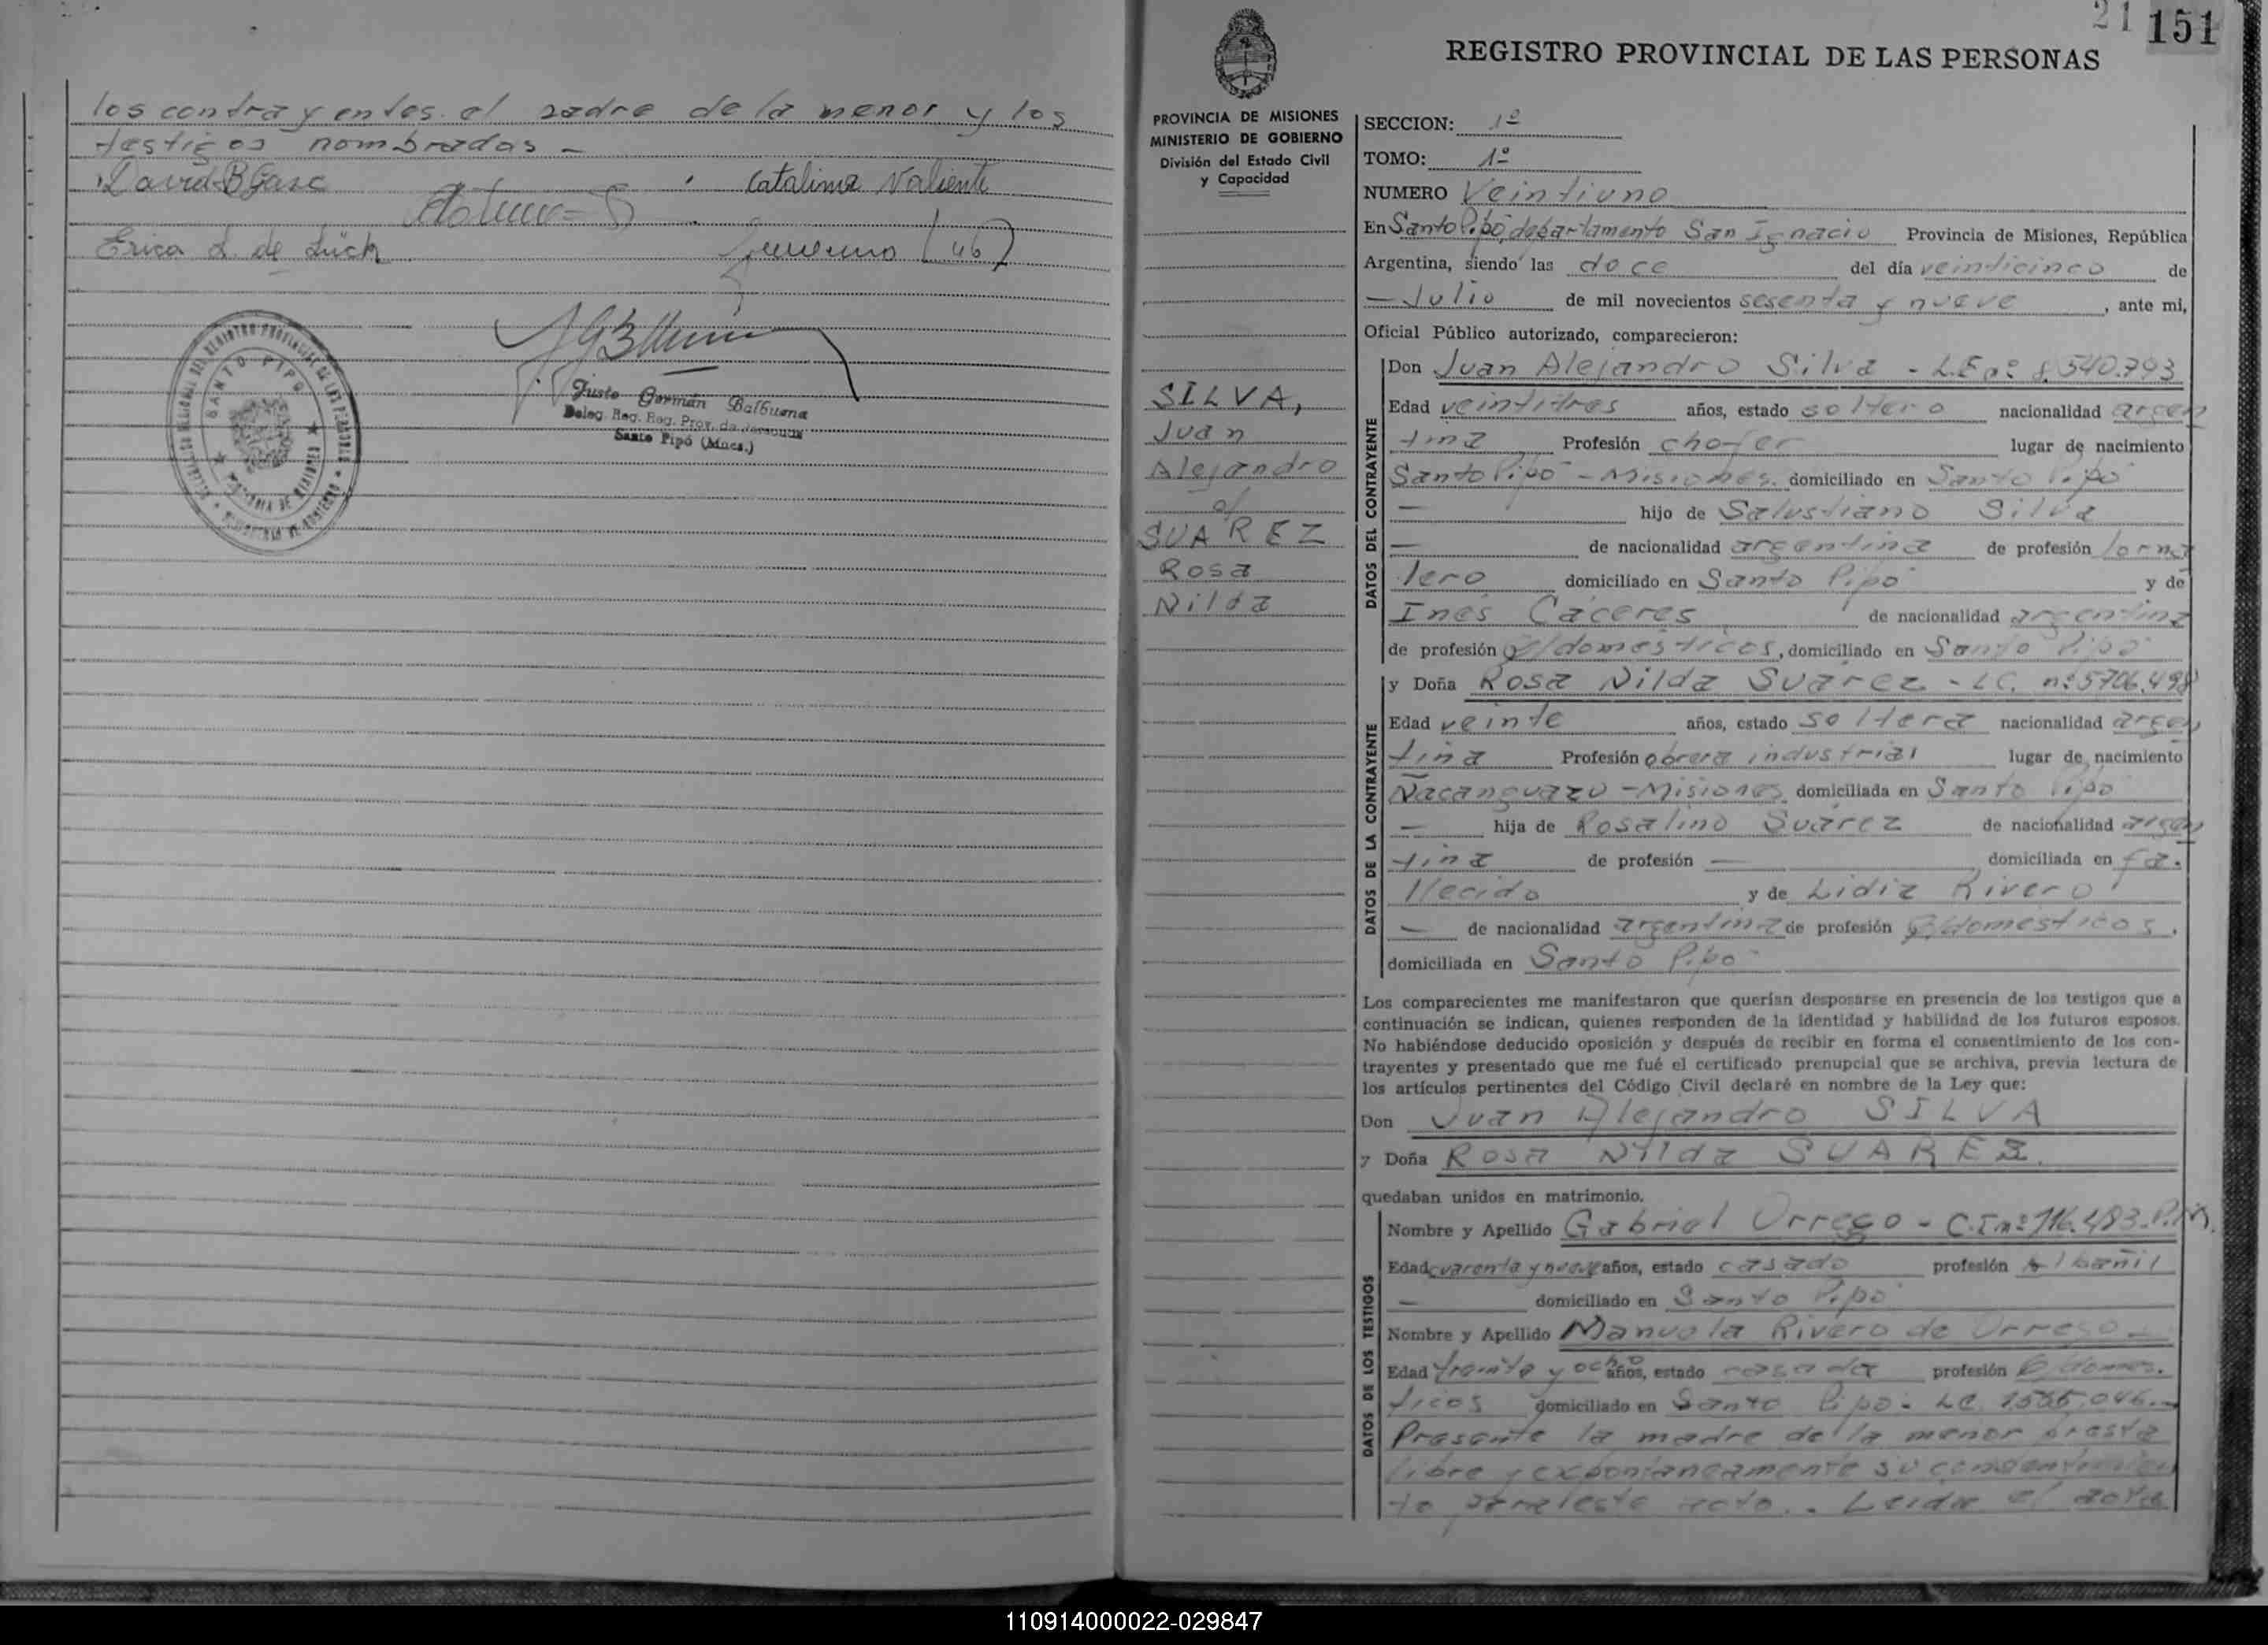 los contrayentes el padre de la menor y los
testigos nombrados -
David B Gasc
Catalina Valiente
Erica L. de Lück
Justo Germán Balbuena
Deleg. Reg. Reg. Prov. de Personas
Santo Pipó (Mnes.)
SANTO PIPO
21 151
REGISTRO PROVINCIAL DE LAS PERSONAS
PROVINCIA DE MISIONES
MINISTERIO DE GOBIERNO
División del Estado Civil
y Capacidad
SILVA,
Juan
Alejandro
c/
SUAREZ
Rosa
Nilda
SECCION: 1º
TOMO: 1º
NUMERO Veintiuno
En Santo Pipó, departamento San Ignacio Provincia de Misiones, República
Argentina, siendo las doce del día veinticinco de
— Julio de mil novecientos sesenta y nueve, ante mi,
Oficial Público autorizado, comparecieron:
DATOS DEL CONTRAYENTE
Don Juan Alejandro Silva - L.E nº 8.540.793
Edad veintitres años, estado soltero nacionalidad argen
tina Profesión chofer lugar de nacimiento
Santo Pipó - Misiones. domiciliado en Santo Pipó
— hijo de Salustiano Silva
— de nacionalidad argentina de profesión Jorna
lero domiciliado en Santo Pipó y de
Inés Cáceres de nacionalidad argentina
de profesión q/domésticos, domiciliado en Santo Pipó
DATOS DE LA CONTRAYENTE
y Doña Rosa Nilda Suárez - LC. nº 5706.498
Edad veinte años, estado soltera nacionalidad argen
tina Profesión obrera industrial lugar de nacimiento
Ñacanguazu - Misiones domiciliada en Santo Pipó
— hija de Rosalino Suárez de nacionalidad argen
tina de profesión — domiciliada en fa.
llecido y de Lidia Rivero
— de nacionalidad argentina de profesión q/domésticos.
domiciliada en Santo Pipó
Los comparecientes me manifestaron que querían desposarse en presencia de los testigos que a
continuación se indican, quienes responden de la identidad y habilidad de los futuros esposos.
No habiéndose deducido oposición y después de recibir en forma el consentimiento de los con-
trayentes y presentado que me fué el certificado prenupcial que se archiva, previa lectura de
los artículos pertinentes del Código Civil declaré en nombre de la Ley que:
Don Juan Alejandro SILVA
y Doña Rosa Nilda SUAREZ.
quedaban unidos en matrimonio.
DATOS DE LOS TESTIGOS
Nombre y Apellido Gabriel Orrego - C.I nº 116.483. P.M.
Edad cuarenta y nueve años, estado casado profesión Albañil
— domiciliado en Santo Pipó
Nombre y Apellido Manuela Rivero de Orrego -
Edad treinta y ocho años, estado casada profesión q domés.
ticos domiciliado en Santo Pipó - LC.
Presente la madre de la menor presta
libre y expontaneamente su consentimien
to para este acto. . Leida el acta
110914000022-029847